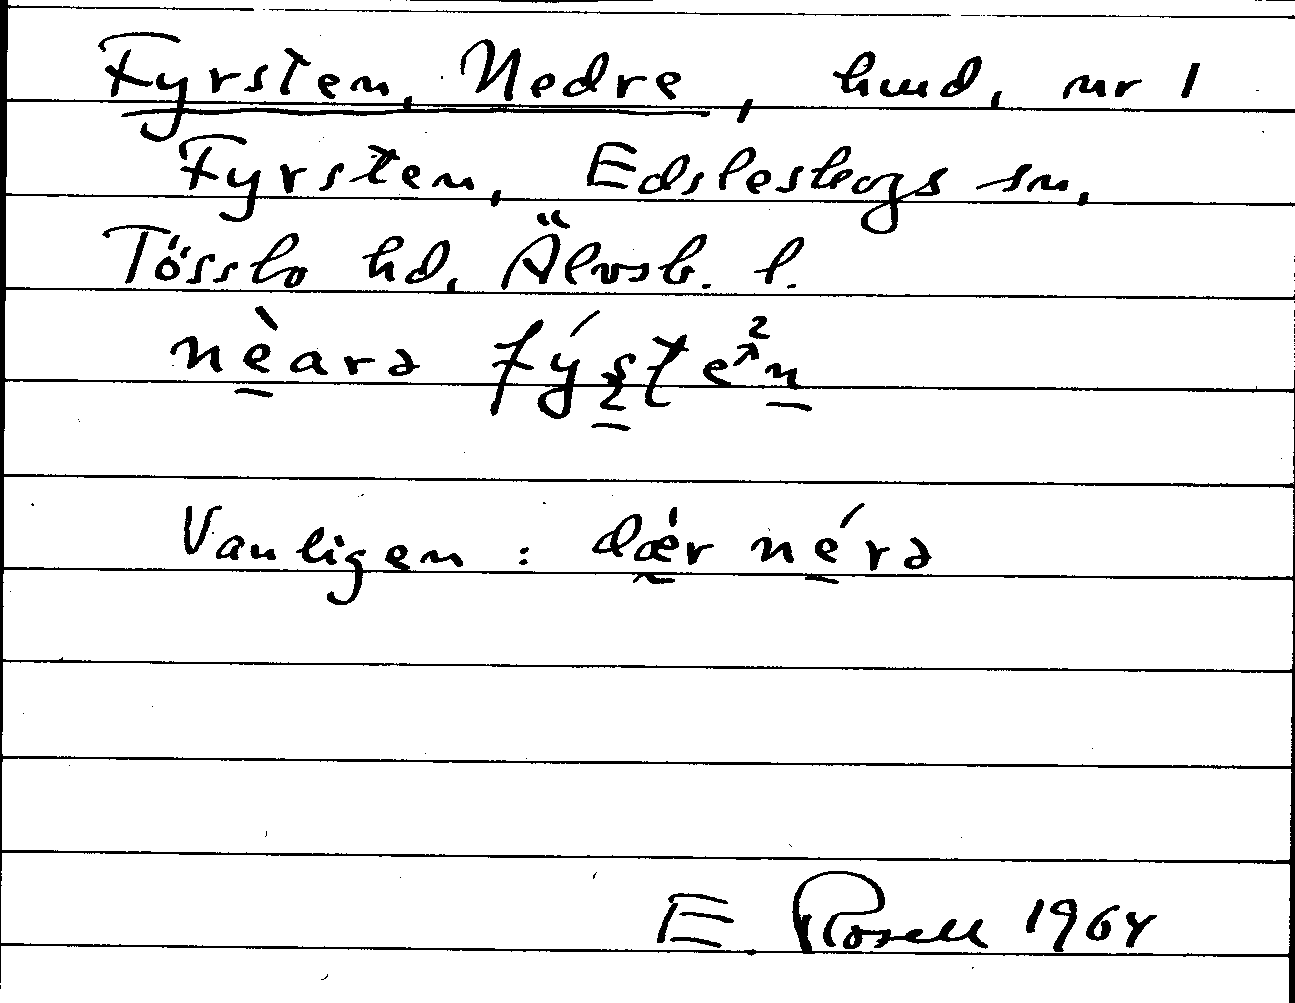 Fyrsten, Nedre, hmd, nr 1
Fyrsten, Edsleskogs sn,
Tössbo hd, Älvsb. l.
nèarə fýste²n
Vanligen: dǽr nérə
E. Rosell 1964